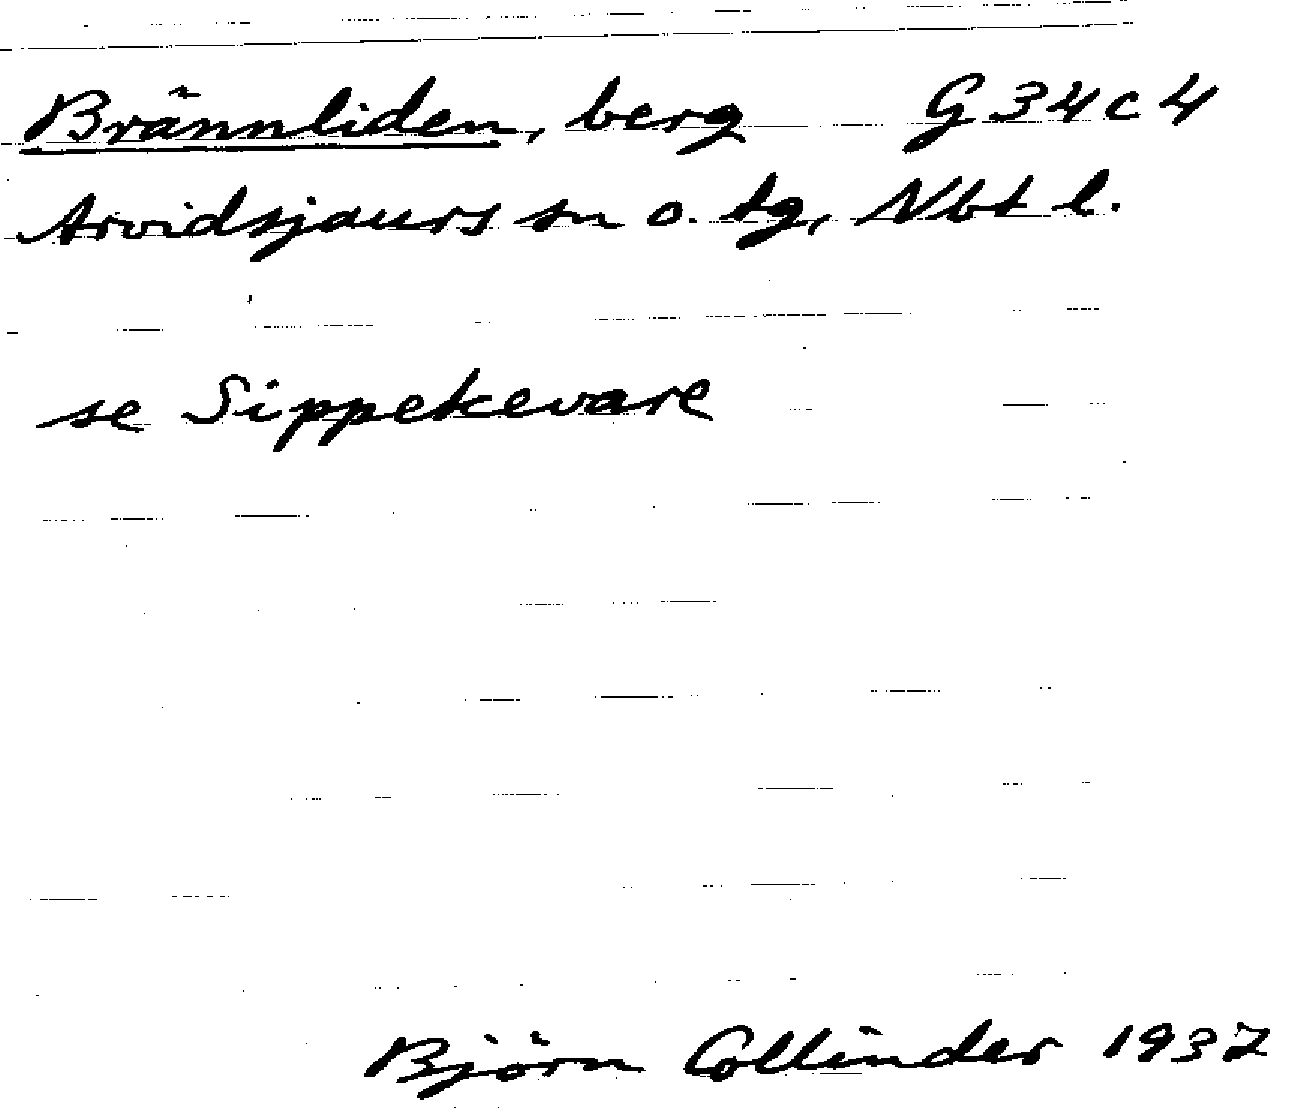 Brännliden, berg G 34 c 4
Arvidsjaurs sn o. tg, Nbt l.
se Sippekevare
Björn Collinder 1937